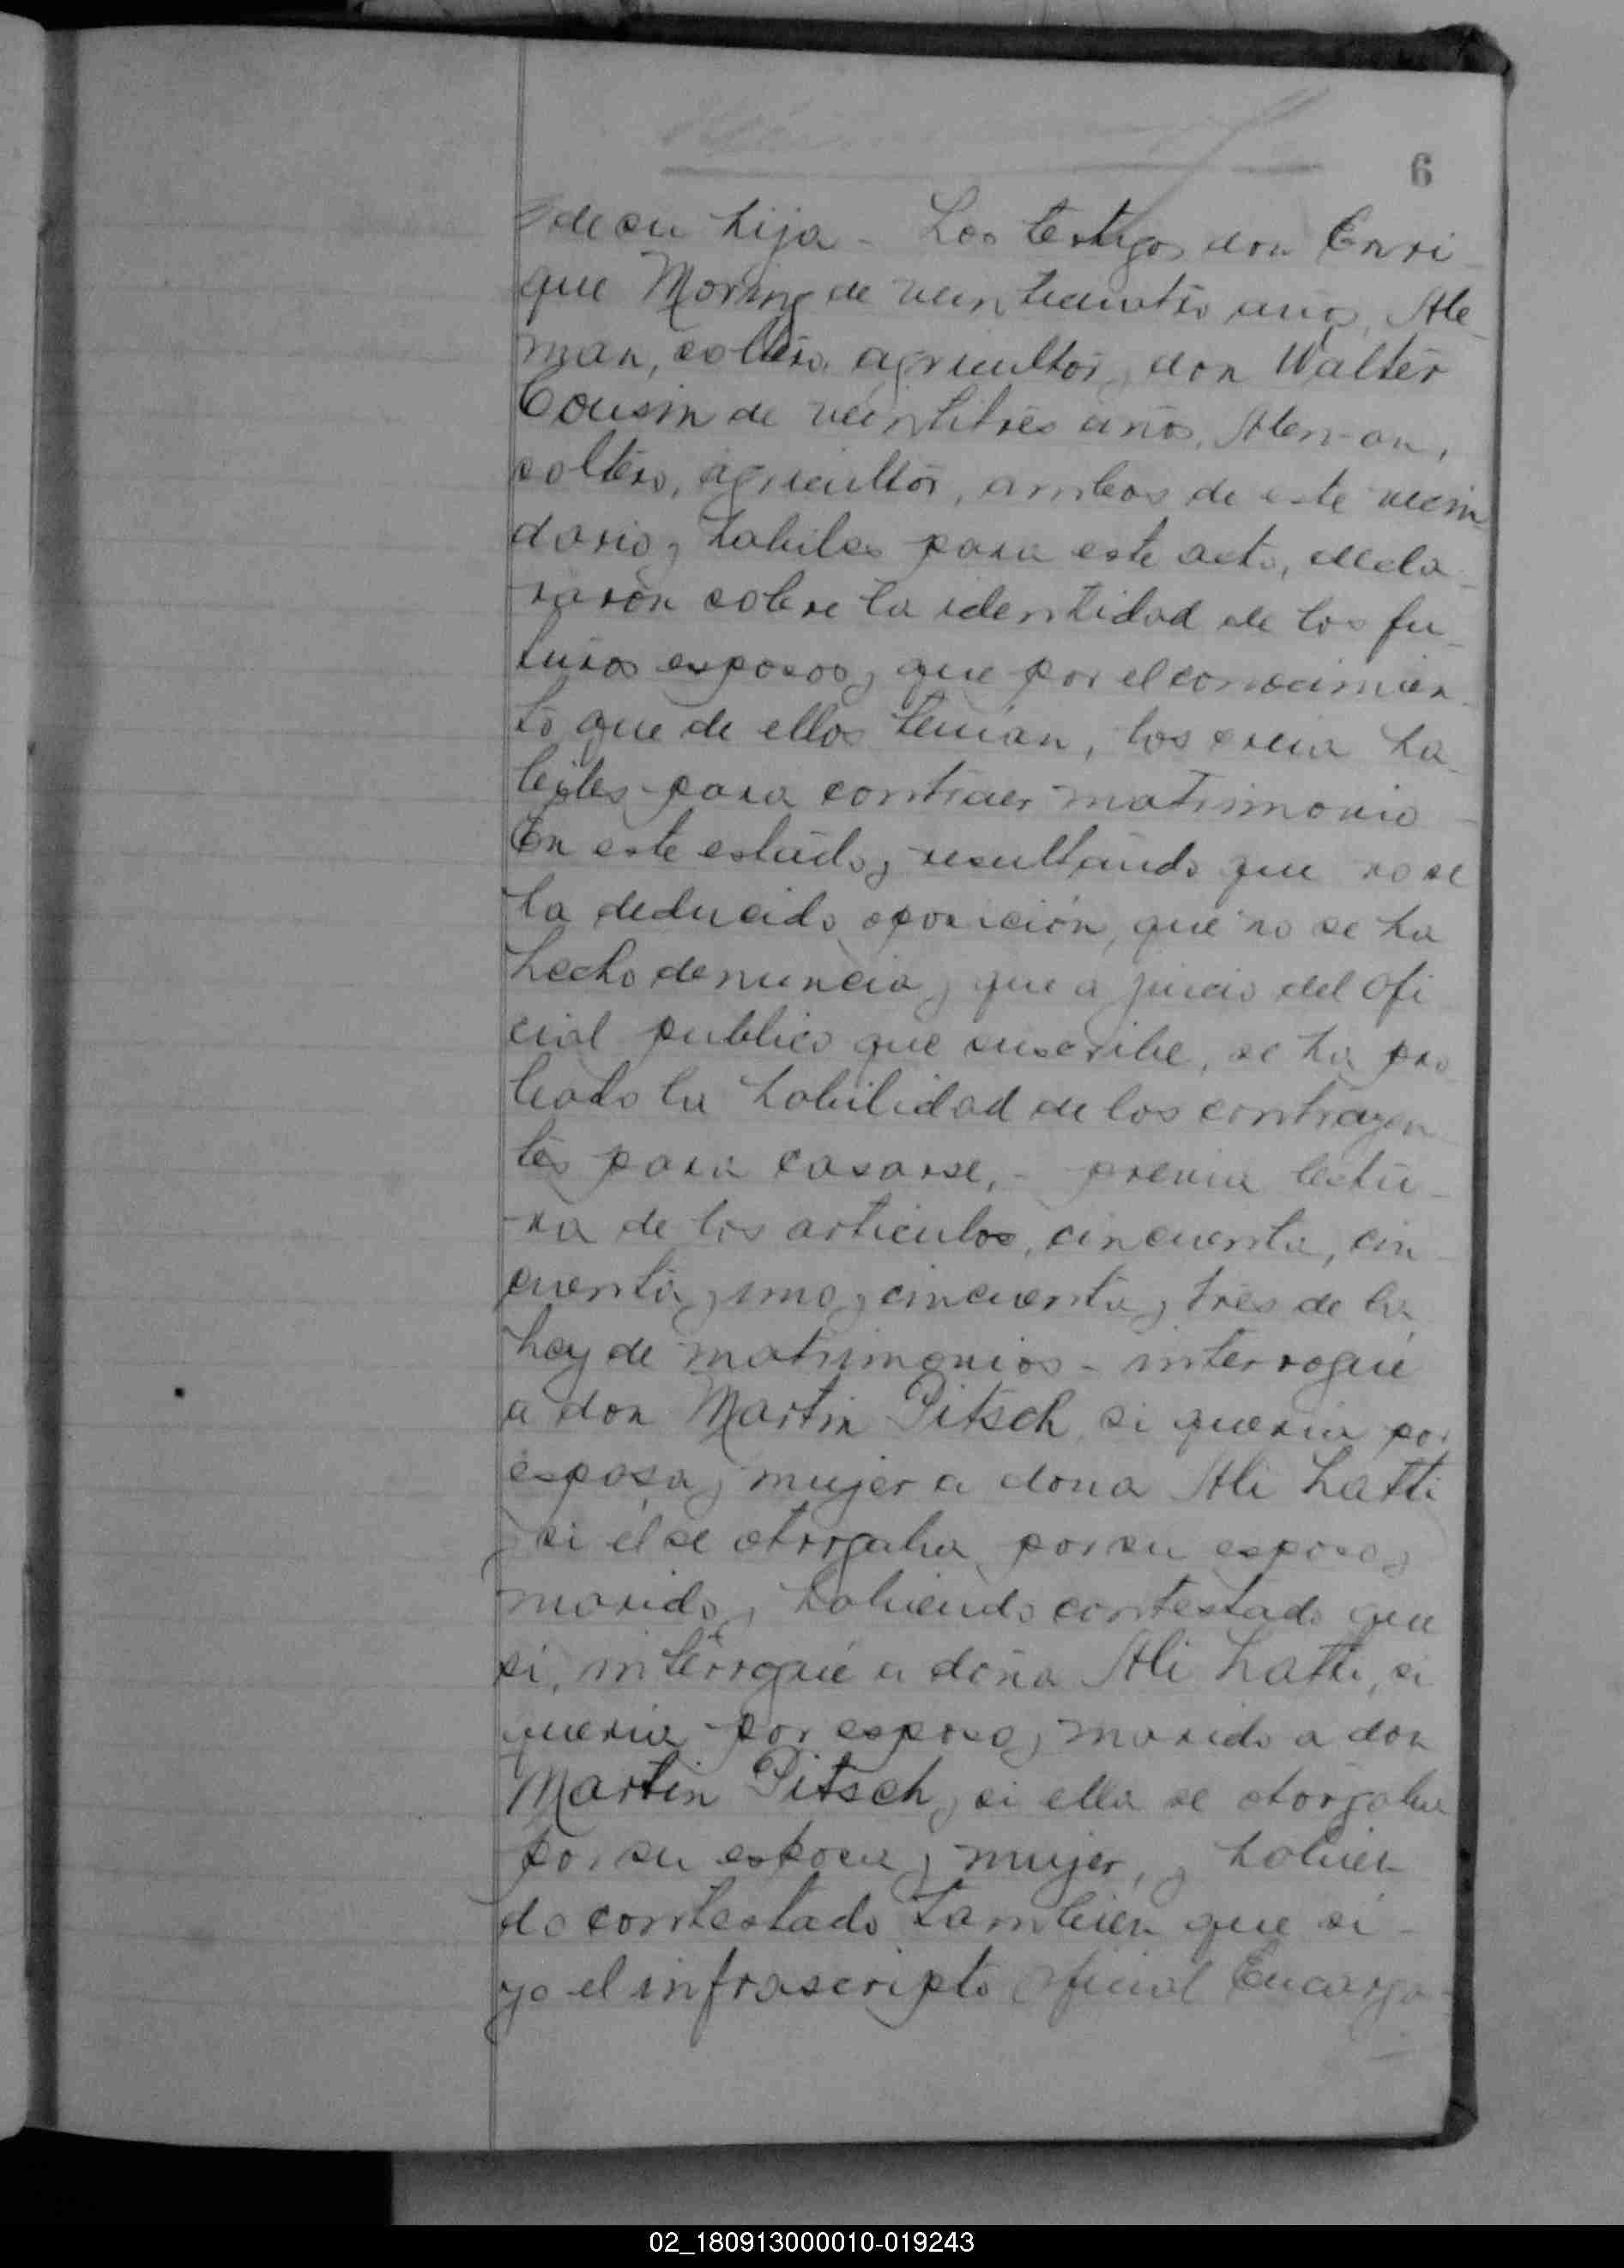 6
de su hija - Los testigos don Enri-
que Moring de veinticuatro años, Ale-
man, soltero, agricultor y don Walter
Cousin de veintitres años, Aleman,
soltero, agricultor, ambos de este vecin
dario y habiles para este acto, decla-
raron sobre la identidad de los fu-
turos esposos y que por el conocimien-
to que de ellos tenian, los creia ha-
biles para contraer matrimonio -
En este estado y resultando que no se
ha deducido oposición, que no se ha
hecho denuncia y que a juicio del ofi
cial publico que suscribe, se ha pro
bado la habilidad de los contrayen
tes para casarse, - previa lectu-
-ra de los articulos, cincuenta, cin-
cuenta y uno y cincuenta y tres de la
Ley de matrimonios - interrogué
a don Martin Pitsch si queria por
esposa y mujer a dona Ali Latti
y si él se otorgaba por su esposo y
marido y habiendo contestado que
si, interrogué a doña Ali Latti, si
queria por esposo y marido a don
Martin Pitsch y si ella se otorgaba
por su esposa y mujer, y habien
do contestado tambien que si -
yo el infrascripto oficial Encarga-
02_180913000010-019243